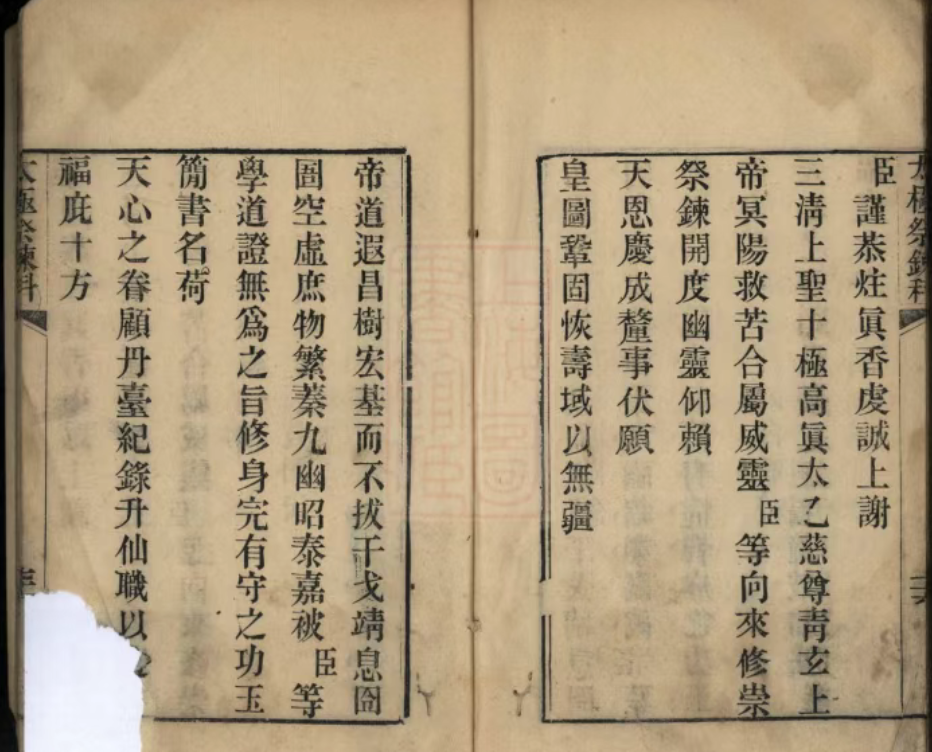 臣謹恭炷眞香虔誠上謝
三淸上聖十極高眞太乙慈尊靑玄上
帝冥陽救苦合屬威靈臣等向來修崇
祭鍊開度幽靈仰賴
天恩慶成釐事伏願
皇圖鞏固恢壽域以無疆
帝道遐昌樹宏基而不拔干戈靖息囹
圄空虛庶物繁蓁九幽昭泰嘉被臣等
學道證無爲之旨修身完有守之功玉
簡書名荷
天心之眷顧丹臺紀錄升仙職以
福庇十方
太極祭鍊科